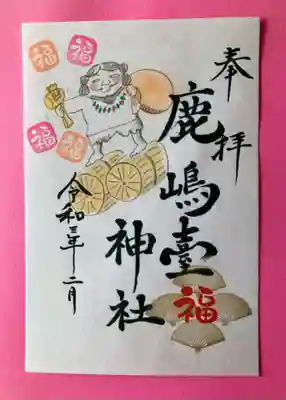 奉拝
鹿嶋臺神社
令和三年二月
福
福
福
福
福